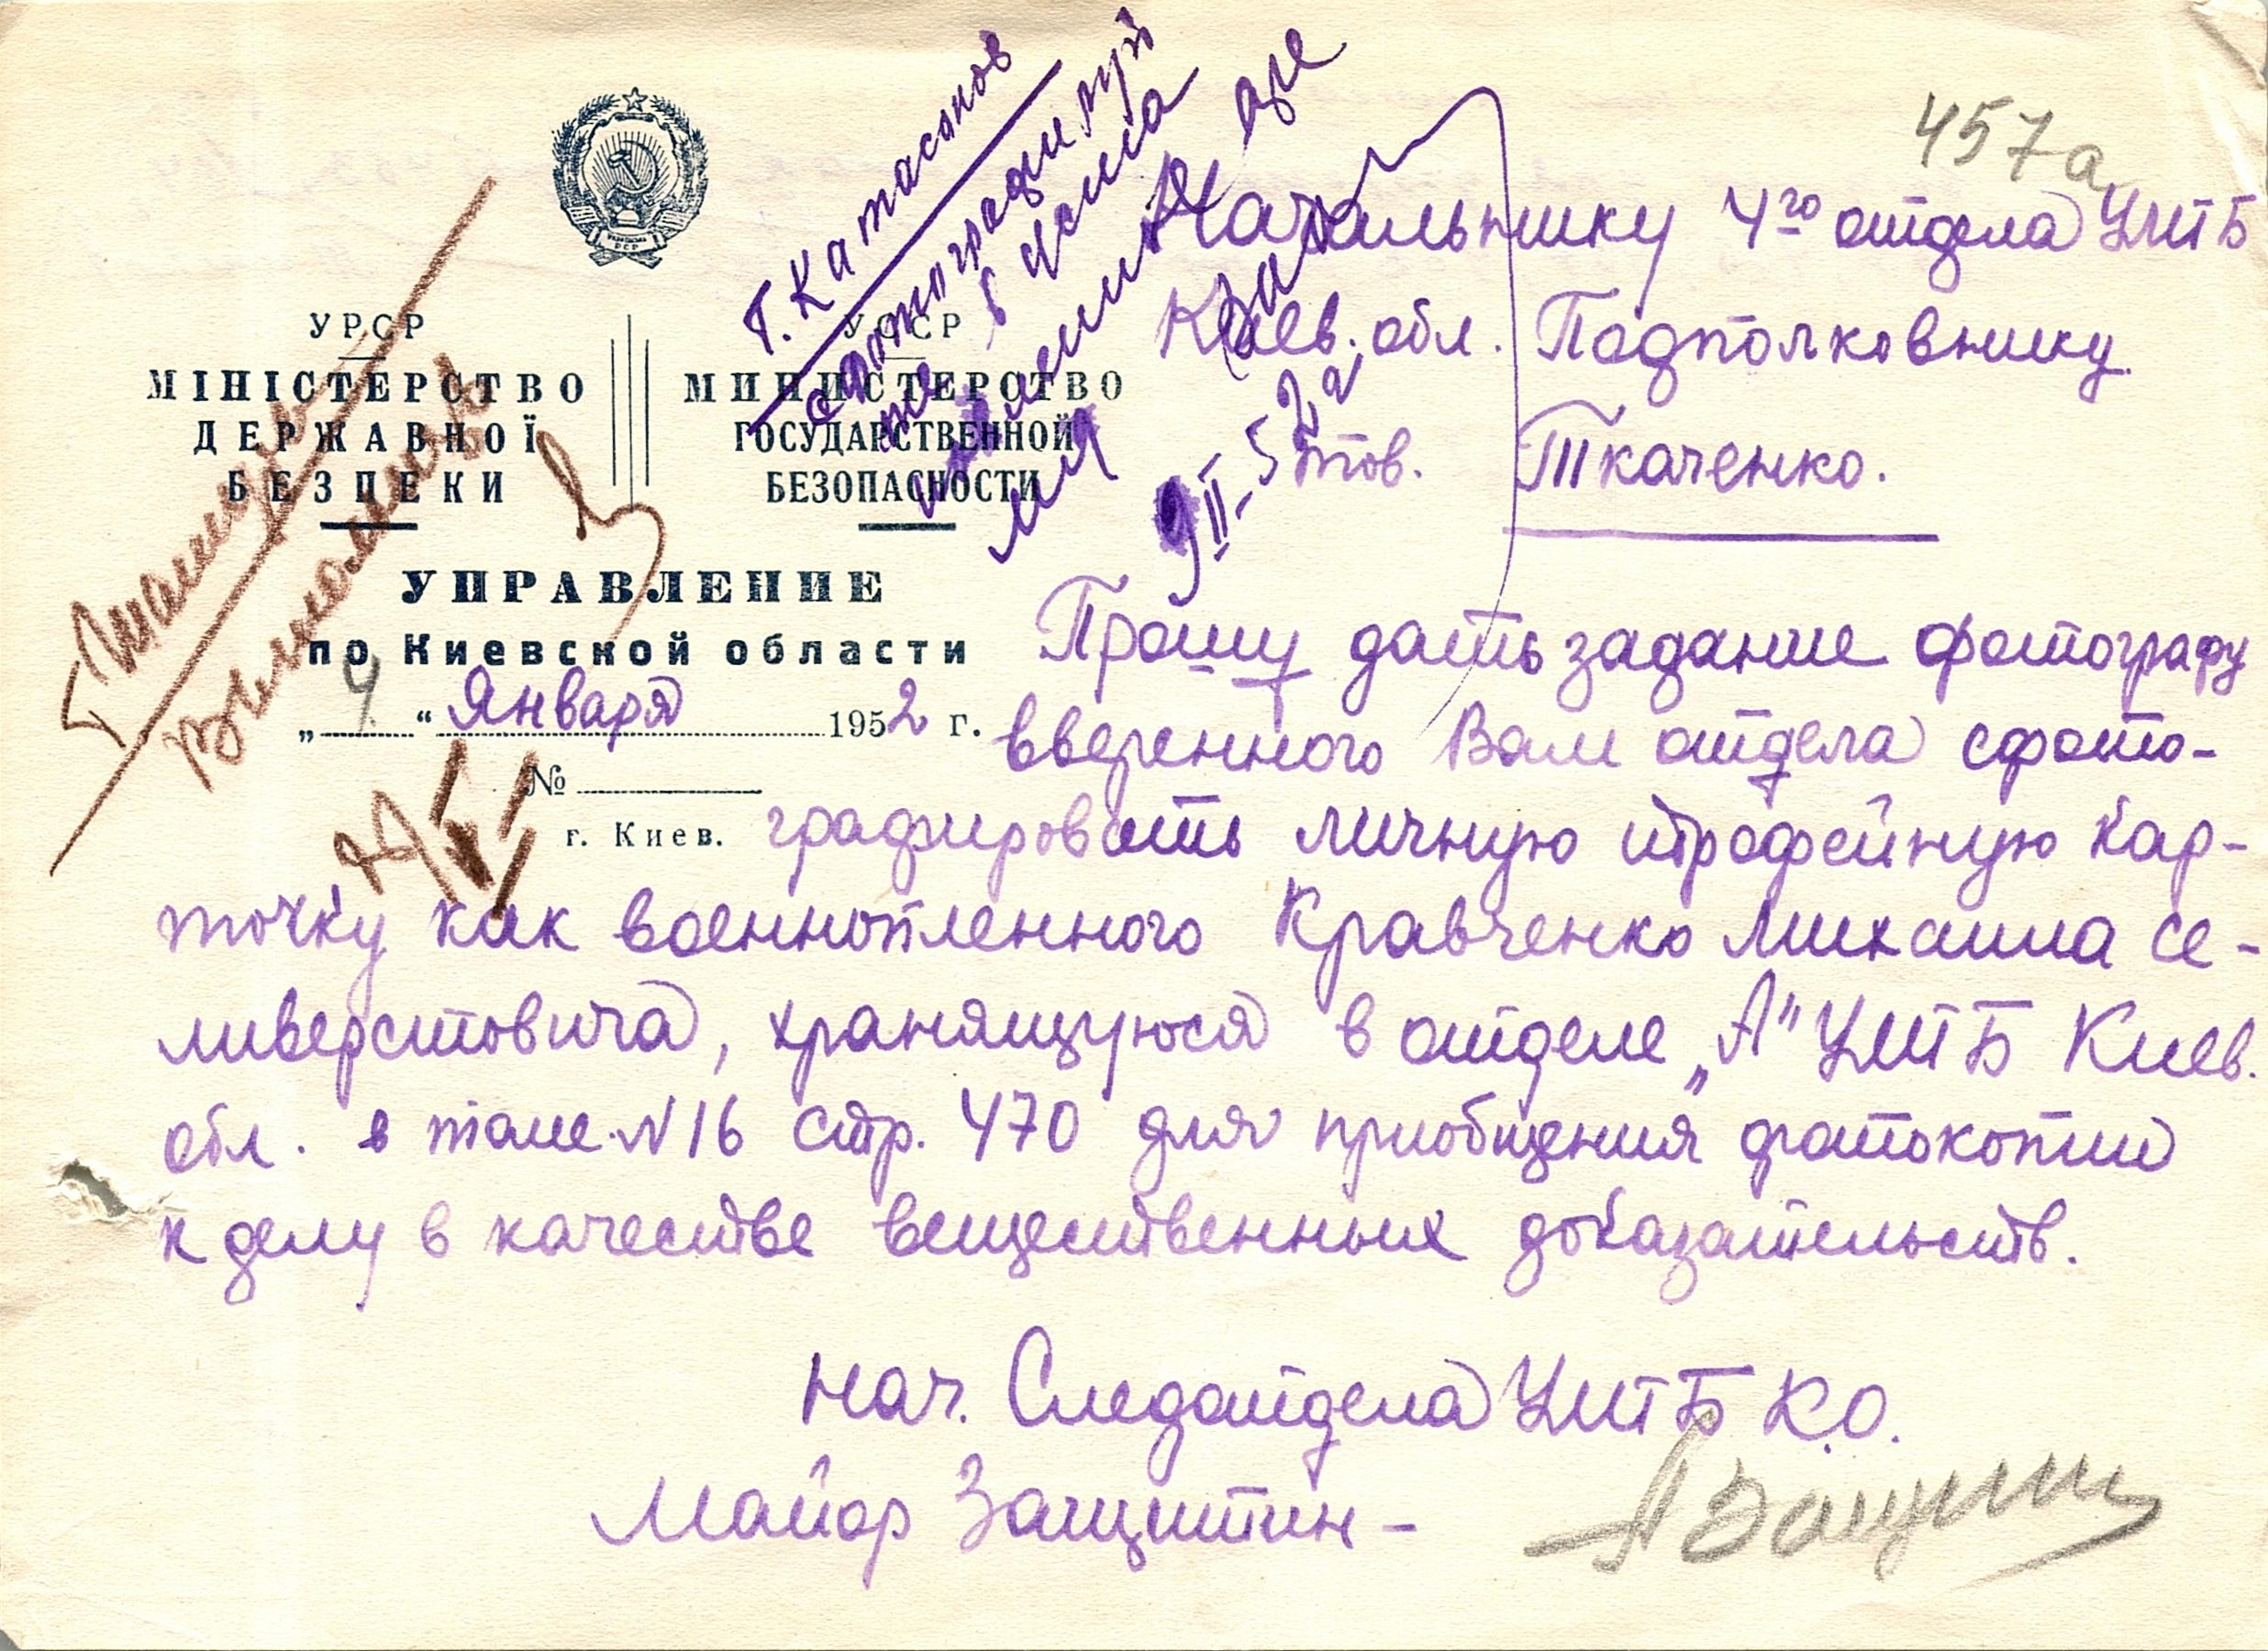 457а
УРСР
МІНІСТЕРСТВО
ДЕРЖАВНОЇ
БЕЗПЕКИ
УССР
МИНИСТЕРСТВО
ГОСУДАРСТВЕННОЙ
БЕЗОПАСНОСТИ
УПРАВЛЕНИЕ
по Киевской области
„ 9 “ Января 1952 г.
№
г. Киев.
Т. Катасонов
9/II-52
Начальнику 4го отдела УМГБ
Киев. обл. Подполковнику
тов. Ткаченко.
Прошу дать задание фотографу
вверенного Вам отдела сфото-
графировать личную трофейную кар-
точку как военнопленного Кравченко Михаила Се-
ливерстовича, хранящуюся в отделе „А" УМГБ Киев.
обл. в томе N16 стр. 470 для приобщения фотокопии
к делу в качестве вещественных доказательств.
Нач. Следотдела УМГБ К.О.
Майор Защитин-